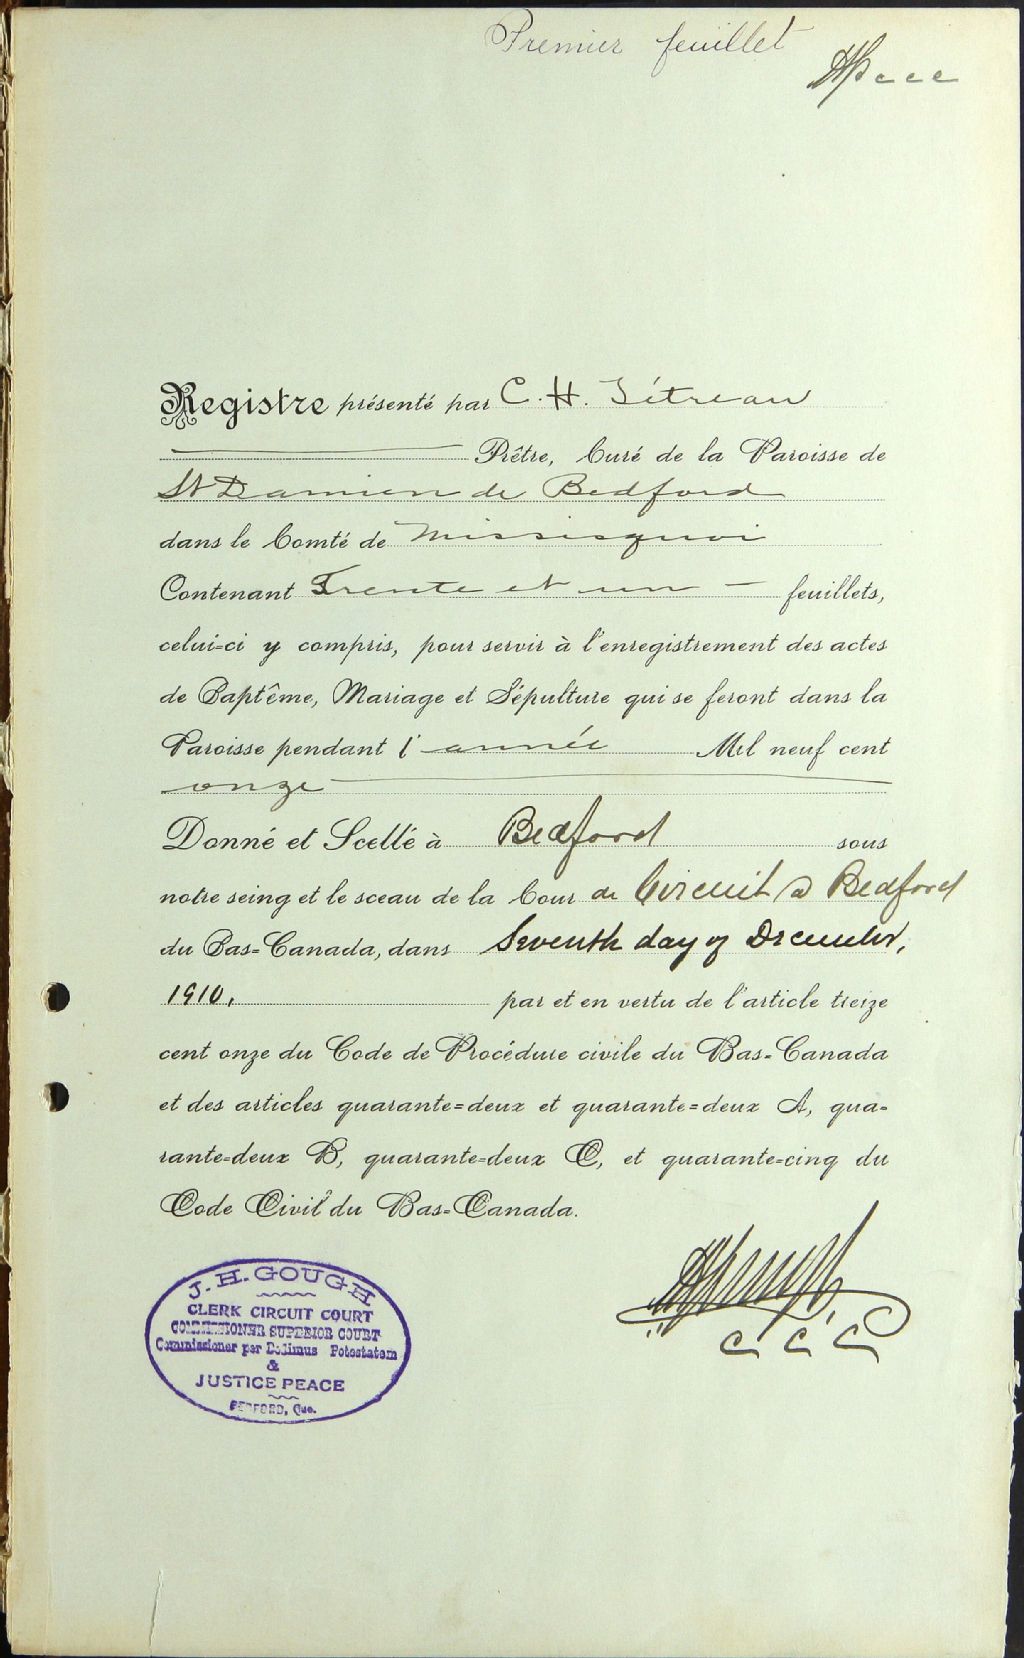 Premier feuillet
Registre présenté par C. H. Tétreau
Prêtre, Curé de la Paroisse de
St Damien de Bedford
dans le Comté de Missisquoi
Contenant Trente et un feuillets,
celui-ci y compris, pour servir à l'enregistrement des actes
de Baptême, Mariage et Sépulture qui se feront dans la
Paroisse pendant l'année Mil neuf cent
onze
Donné et Scellé à Bedford sous
notre seing et le sceau de la Cour de Circuit a Bedford
du Bas-Canada, dans Seventh day of December,
1910, par et en vertu de l'article treize
cent onze du Code de Procédure civile du Bas-Canada
et des articles quarante-deux et quarante-deux A, qua-
rante-deux B, quarante-deux C, et quarante-cinq du
Code Civil du Bas-Canada.
C C C
J. H. GOUGH
CLERK CIRCUIT COURT
COMMISSIONER SUPERIOR COURT
Commissioner per Dedimus Potestatem
&
JUSTICE PEACE
BEDFORD, Que.